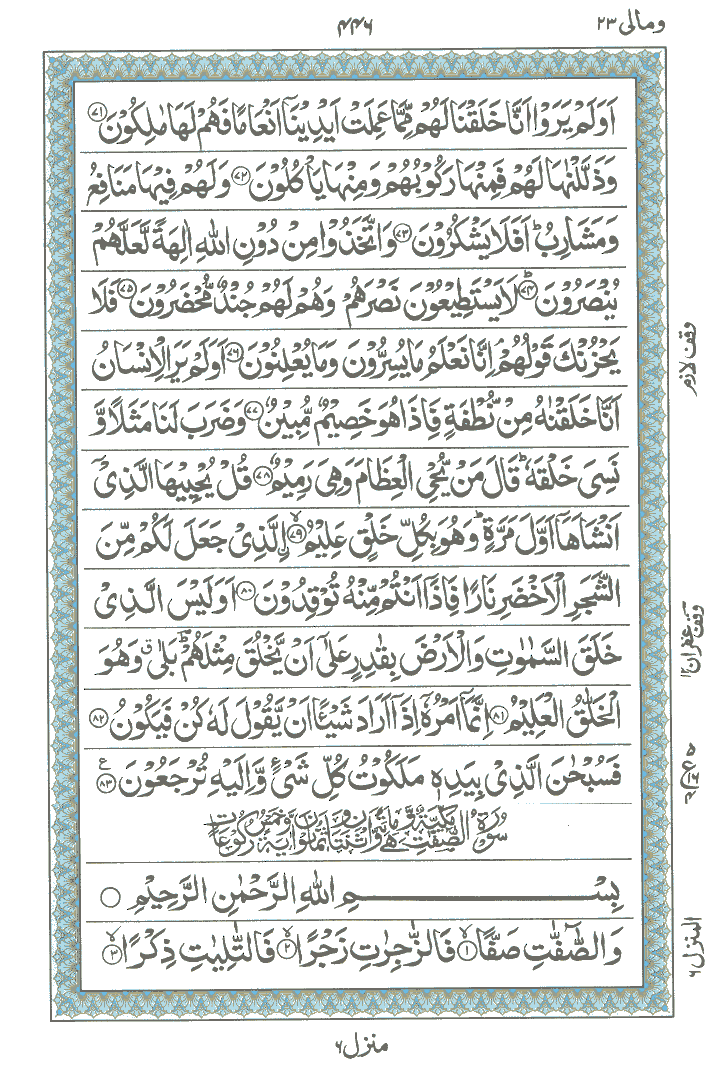 ومالی ۲۳
۴۴۶
اَوَلَمْ یَرَوْا اَنَّا خَلَقْنَا لَهُمْ مِّمَّا عَمِلَتْ اَیْدِیْنَاۤ اَنْعَامًا فَهُمْ لَهَا مٰلِكُوْنَ ﴿۷۱﴾
وَذَلَّلْنٰهَا لَهُمْ فَمِنْهَا رَكُوْبُهُمْ وَمِنْهَا یَاْكُلُوْنَ ﴿۷۲﴾ وَلَهُمْ فِیْهَا مَنَافِعُ
وَمَشَارِبُ ؕ اَفَلَا یَشْكُرُوْنَ ﴿۷۳﴾ وَاتَّخَذُوْا مِنْ دُوْنِ اللّٰهِ اٰلِهَةً لَّعَلَّهُمْ
یُنْصَرُوْنَ ؕ﴿۷۴﴾ لَا یَسْتَطِیْعُوْنَ نَصْرَهُمْ وَهُمْ لَهُمْ جُنْدٌ مُّحْضَرُوْنَ ﴿۷۵﴾ فَلَا
یَحْزُنْكَ قَوْلُهُمْ ۘ اِنَّا نَعْلَمُ مَا یُسِرُّوْنَ وَمَا یُعْلِنُوْنَ ﴿۷۶﴾ اَوَلَمْ یَرَ الْاِنْسَانُ
اَنَّا خَلَقْنٰهُ مِنْ نُّطْفَةٍ فَاِذَا هُوَ خَصِیْمٌ مُّبِیْنٌ ﴿۷۷﴾ وَضَرَبَ لَنَا مَثَلًا وَّ
نَسِیَ خَلْقَهٗ ؕ قَالَ مَنْ یُّحْیِ الْعِظَامَ وَهِیَ رَمِیْمٌ ﴿۷۸﴾ قُلْ یُحْیِیْهَا الَّذِیْۤ
اَنْشَاَهَاۤ اَوَّلَ مَرَّةٍ ؕ وَهُوَ بِكُلِّ خَلْقٍ عَلِیْمُ ۙ﴿۷۹﴾ اِ۟لَّذِیْ جَعَلَ لَكُمْ مِّنَ
الشَّجَرِ الْاَخْضَرِ نَارًا فَاِذَاۤ اَنْتُمْ مِّنْهُ تُوْقِدُوْنَ ﴿۸۰﴾ اَوَلَیْسَ الَّذِیْ
خَلَقَ السَّمٰوٰتِ وَالْاَرْضَ بِقٰدِرٍ عَلٰۤی اَنْ یَّخْلُقَ مِثْلَهُمْ ؕ بَلٰی ۗ وَهُوَ
الْخَلّٰقُ الْعَلِیْمُ ﴿۸۱﴾ اِنَّمَاۤ اَمْرُهٗۤ اِذَاۤ اَرَادَ شَیْـًٔا اَنْ یَّقُوْلَ لَهٗ كُنْ فَیَكُوْنُ ﴿۸۲﴾
فَسُبْحٰنَ الَّذِیْ بِیَدِهٖ مَلَكُوْتُ كُلِّ شَیْءٍ وَّاِلَیْهِ تُرْجَعُوْنَ ﴿۸۳﴾ ع
سُوْرَةُ الصّٰٓفّٰتِ مَكِّیَّةٌ وَّهِیَ مِائَةٌ وَّاثْنَتَانِ وَثَمَانُوْنَ اٰیَةً وَّخَمْسُ رُكُوْعَاتٍ
بِسْمِ اللّٰهِ الرَّحْمٰنِ الرَّحِیْمِ
وَالصّٰٓفّٰتِ صَفًّا ۙ﴿۱﴾ فَالزّٰجِرٰتِ زَجْرًا ۙ﴿۲﴾ فَالتّٰلِیٰتِ ذِكْرًا ۙ﴿۳﴾
وقف لازم
وقف غفران
المنزل ۶
منزل ۶